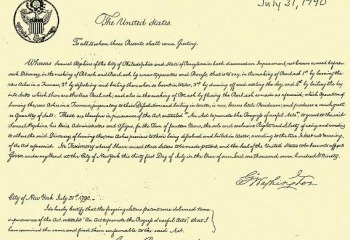 July 31, 1790
The United States
To all to whom these Presents shall come, Greeting.
Whereas Samuel Hopkins of the City of Philadelphia and State of Pensylvania hath discovered an Improvement, not known or used before
such Discovery, in the making of Pot ash and Pearl ash by a new Apparatus and Process; that is to say, in the making of Pearl ash 1st by burning the
raw Ashes in a Furnace, 2d by dissolving and boiling them when so burnt in Water, 3d by drawing off and settling the Ley, and 4th by boiling the Ley
into Salts which then are the true Pearl ash; and also in the making of Pot ash by fluxing the Pearl ash so made as aforesaid; which Operation of
burning the raw Ashes in a Furnace, preparatory to their Dissolution and boiling in Water, is new, leaves little Residuum; and produces a much greater
Quantity of Salt: These are therefore in pursuance of the Act, entituled "An Act to promote the Progress of useful Arts", to grant to the said
Samuel Hopkins, his Heirs, Administrators and Assigns, for the Term of fourteen Years, the sole and exclusive Right and Liberty of using and vending
to others the said Discovery of burning the raw Ashes previous to their being dissolved and boiled in Water, according to the true Intent and meaning
of the Act aforesaid. In Testimony whereof I have caused these Letters to be made patent, and the Seal of the United States to be hereunto affixed
Given under my Hand at the City of New York this thirty first Day of July in the Year of our Lord one thousand seven hundred & Ninety.
G Washington
City of New York July 31st 1790.
I do hereby Certify that the foregoing Letters patent were delivered to me
in pursuance of the Act, entituled "An Act to promote the Progress of useful Arts"; that I
have examined the same, and find them conformable to the said Act.